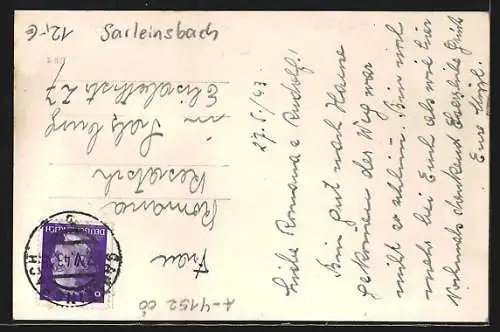 12,-€
Sarleinsbach
27.5./43.
Liebe Romana u. Rudolf!
Bin gut nach Hause
gekommen der Weg war
nicht so schlim. Bin viel
mehr bei Euch als wie hier
Vielmals dankend Herzliche Grüße
Eure
Frau
Romana
in Salzburg
Elisabethstr 27
DEUTSCHES REICH
A-4152 OÖ